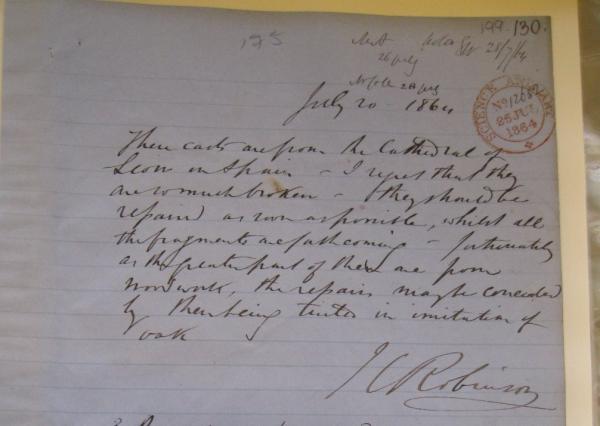 199. 130.
195
28/7/64
26 July
28 July
July 20 - 1864
SCIENCE AND ART
No 1268
25 JUL
1864
These casts are from the Cathedral of
Leon in Spain - I regret that they
are so much broken - they should be
repaired as soon as possible, whilst all
the fragments are forthcoming - fortunately
as the greater part of them are from
woodwork, the repairs may be concealed
by their being tinted in imitation of
oak
J C Robinson